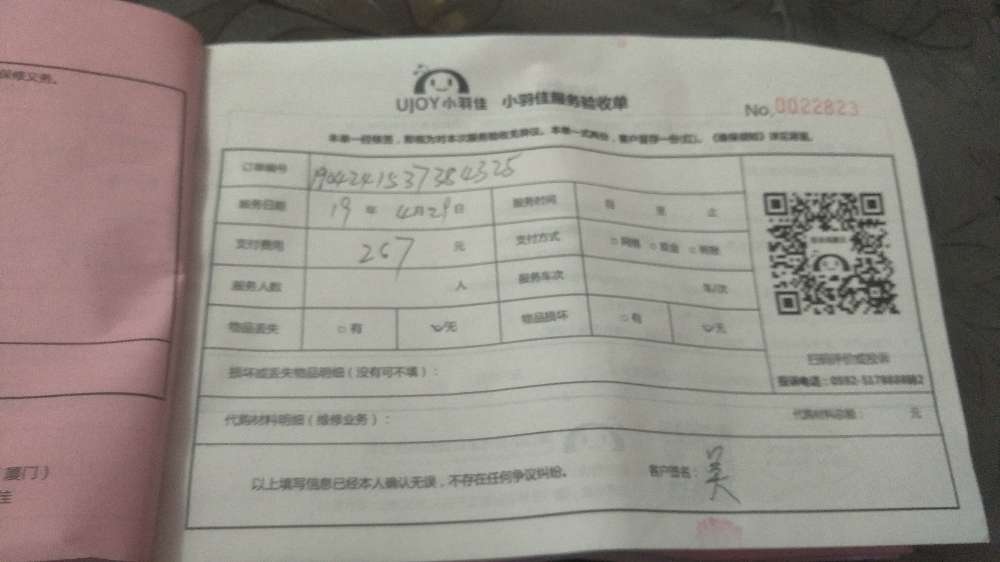 保修义务。
UJOY小羽佳 小羽佳服务验收单
No,0022823
本单一经签署，即视为对本次服务验收无异议。本单一式两份，客户留存一份(红)。
订单编号 1904241537384325
服务日期 19 年 4月29日 服务时间 自 至 止
支付费用 267 元 支付方式 □网络 □现金
服务人数 人 服务车次 车/次
物品丢失 □有 无 物品损坏 □有 无
扫码评价或投诉
损坏或丢失物品明细（没有可不填）：
投诉电话：0592-
代购材料明细（维修业务）： 代购材料总额： 元
以上填写信息已经本人确认无误，不存在任何争议纠纷。 客户签名：吴
厦门）
佳